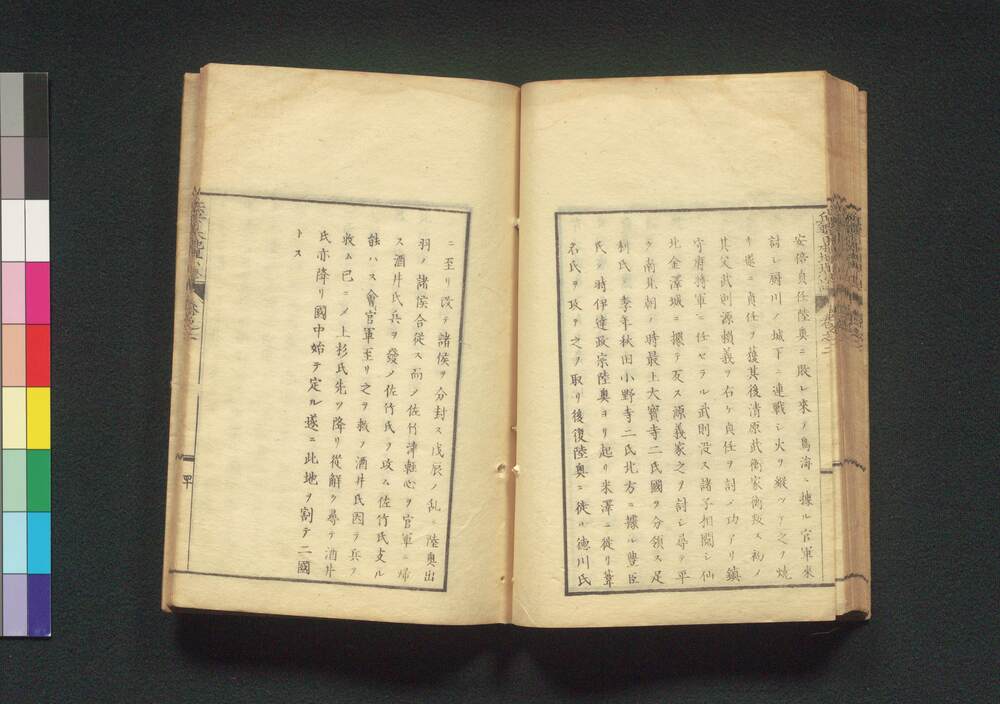 安倍貞任陸奥ニ敗レ來テ鳥海ニ據ル官軍來
討シ厨川ノ城下ニ連戰シ火ヲ縱ツテ之ヲ燒
キ遂ニ貞任ヲ獲其後清原武衡家衡叛ス初ノ
其父武則源頼義ヲ右ケ貞任ヲ討ノ功アリ鎭
守府將軍ニ任セラル武則没ス諸子相鬩シ仙
北金澤城ニ據テ反ス源義家之ヲ討シ尋テ平
ク南北朝ノ時最上大寶寺二氏國ヲ分領ス足
利氏ノ季年秋田小野寺二氏北方ニ據ル豊臣
氏ノ時伊達政宗陸奥ヨリ起リ米澤ニ徙リ葦
名氏ヲ攻テ之ヲ取リ後復陸奥ニ徙ル德川氏
ニ至リ改テ諸侯ヲ分封ス戊辰ノ乱ニ陸奥出
羽ノ諸侯合從ス而ノ佐竹津軽心ヲ官軍ニ歸
ス酒井氏兵ヲ發ノ佐竹氏ヲ攻ム佐竹氏支ル
能ハス會官軍至リ之ヲ救フ酒井氏因テ兵ヲ
收ム已ニノ上杉氏先ツ降リ從解ク尋テ酒井
氏亦降リ國中始テ定ル遂ニ此地ヲ割テ二國
トス